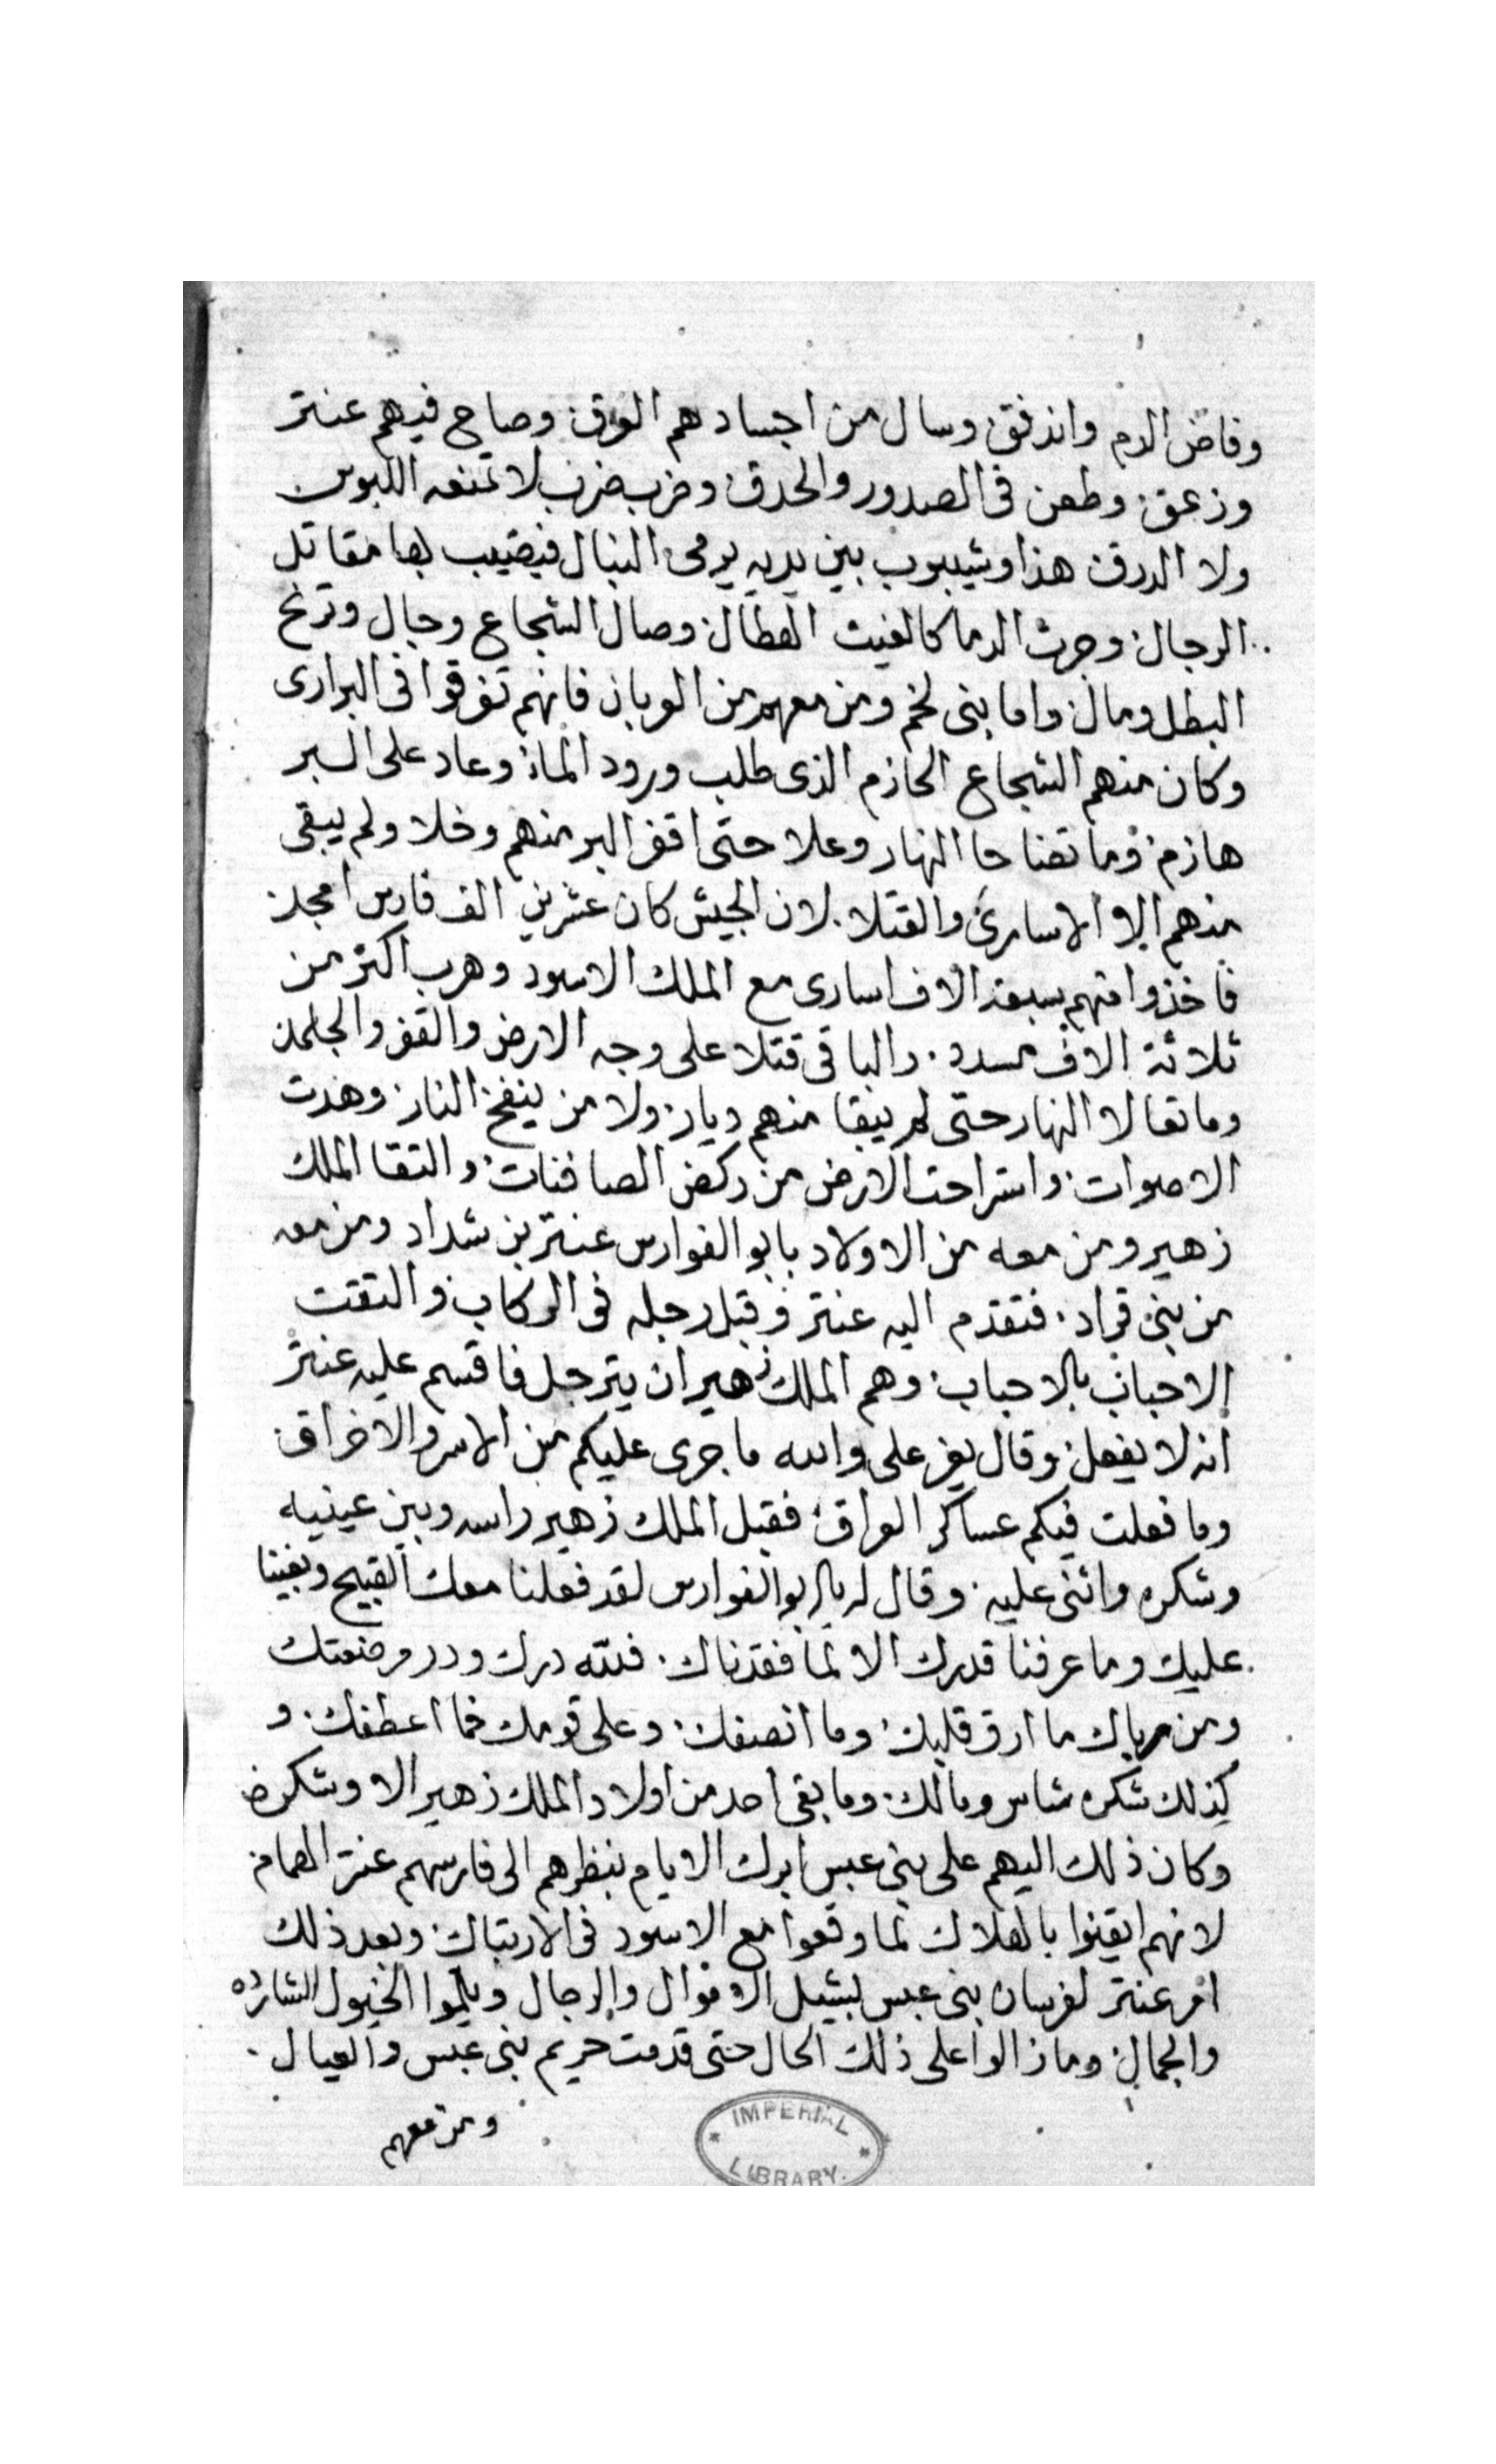 وفاض الدم واندفق وسال من اجسادهم العرق وصاح فيهم عنتر
وزعق وطعن فى الصدور والحدق وضرب ضرب لا تمنعه اللبوس
ولا الدرق هذا وشيبوب بين يديه يرمى النبال فيصيب بها مقاتل
الرجال وجرت الدما كالغيث الهطال وصال الشجاع وجال وترنح
البطل ومال واما بنى لخم ومن معهم من العربان فانهم تفرقوا فى البرارى
وكان منهم الشجاع الحازم الذى طلب ورود الماء وعاد على البر
هازم وما تضاحا النهار وعلا حتى اقفر البر منهم وخلا ولم يبقى
منهم الا الاسارى والقتلا لان الجيش كان عشرين الف فارس امجد
فاخذوا منهم سبعة الاف اسارى مع الملك الاسود وهرب اكثر من
ثلاثة الاف مسدد والباقى قتلا على وجه الارض والقفر والجلمد
وما تعالا النهار حتى لم يبقا منهم ديار ولا من ينفخ النار وهدت
الاصوات واستراحت الارض من ركض الصافنات والتقا الملك
زهير ومن معه من الاولاد بابو الفوارس عنتر بن شداد ومن معه
من بنى قراد فتقدم اليه عنتر وقبل رجله فى الركاب والتقت
الاحباب بالاحباب وهم الملك زهير ان يترجل فاقسم عليه عنتر
انه لا يفعل وقال يعز على والله ما جرى عليكم من الاسر والاخراق
وما فعلت فيكم عساكر العراق فقبل الملك زهير راسه وبين عينيه
وشكره واثنى عليه وقال له يا ابو الفوارس لقد فعلنا معك القبيح وبغينا
عليك وما عرفنا قدرك الا لما فقدناك فلله درك ودر مرضعتك
ومن رباك ما ارق قلبك وما انصفك وعلى قومك فما اعطفك و
كذلك شكره شاس ومالك وما بقى احد من اولاد الملك زهير الا وشكره
وكان ذلك اليهم على بنى عبس ابرك الايام بنظرهم الى فارسهم عنتر الهمام
لانهم ايقنوا بالهلاك لما وقعوا مع الاسود فى الارتباك وبعد ذلك
امر عنتر لفرسان بنى عبس بشيل الاموال والرجال ويلموا الخيول الشارده
والجمال وما زالوا على ذلك الحال حتى قدمت حريم بنى عبس والعيال
ومن معهم
IMPERIAL
LIBRARY.